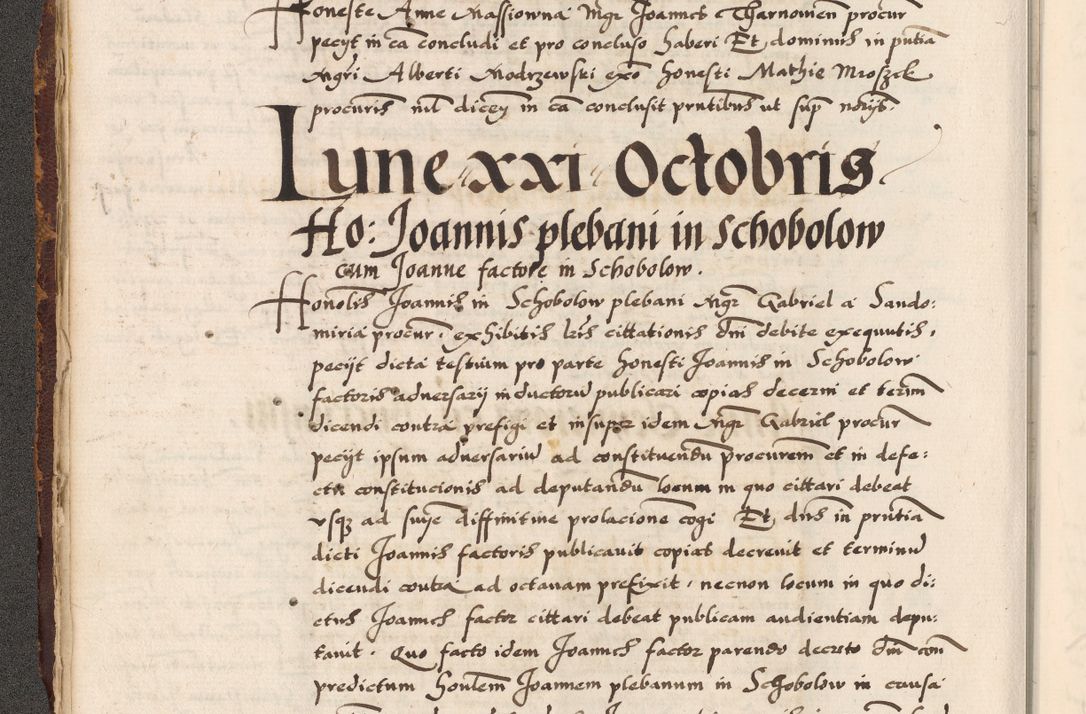 Honeste Anne Massiowna Mgr Joannes Tharnowien procur
pecyt in ca concludi et pro concluso haberi Et dominus in putia
Mgri Alberti Modrzewski exo honesti Mathie Mroszek
procuris nil dicen in ca conclusit prntibus ut sup norijs.
Lune xxi Octobris
Ho: Joannis plebani in Schobolow
cum Joanne factore in Schobolow.
Honolis Joannis in Schobolow plebani Mgr Gabriel a Sando:
miria procur: exhibitis lris cittationis dni debite exequutis,
pecyt dicta testium pro parte honesti Joannis in Schobolow
factoris adversarij inductoru publicari copias decerni et termin
dicendi contra prefigi et insuper idem Mgr Gabriel procur
pecyt ipsum adversariu ad constituendu procurem et in defe:
ctu constitucionis ad deputandu locum in quo cittari debeat
vsqz ad suye diffinitine prolacione cogi Et dns in prntia
dicti Joannis factoris publicavit copias decrevit et terminu
dicendi contra ad octavam prefixit, necnon locum in quo di:
ctus Joannes factor cittari debeat publicam audientiam depu:
tavit. Quo facto idem Joannes factor parendo decreto dni con
predictum honlem Joannem plebanum in Schobolow in causa